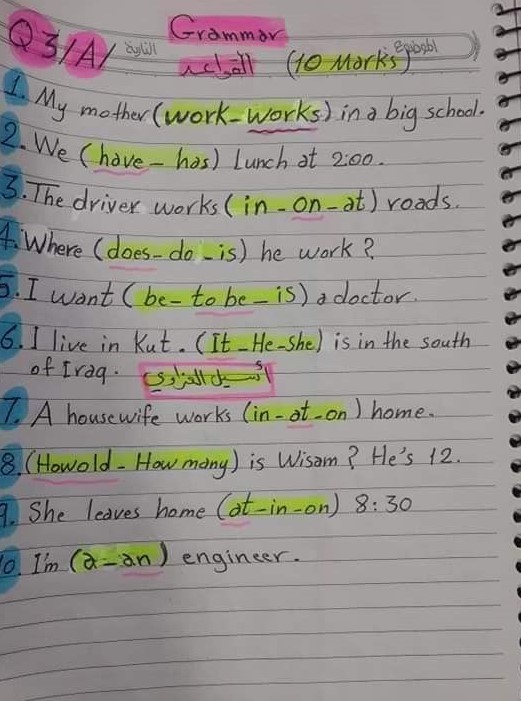 Grammar
Q3/A/ التاريخ القواعد (10 Marks) الموضوع
1. My mother (work-works) in a big school.
2. We (have - has) Lunch at 2:00.
3. The driver works (in - on - at) roads.
4. Where (does- do - is) he work?
5. I want (be - to be - is) a doctor.
6. I live in Kut. (It - He - she) is in the south
of Iraq. أسيل العزاوي
7. A housewife works (in - at - on) home.
8. (How old - How many) is Wisam? He's 12.
9. She leaves home (at - in - on) 8:30
10. I'm (a - an) engineer.